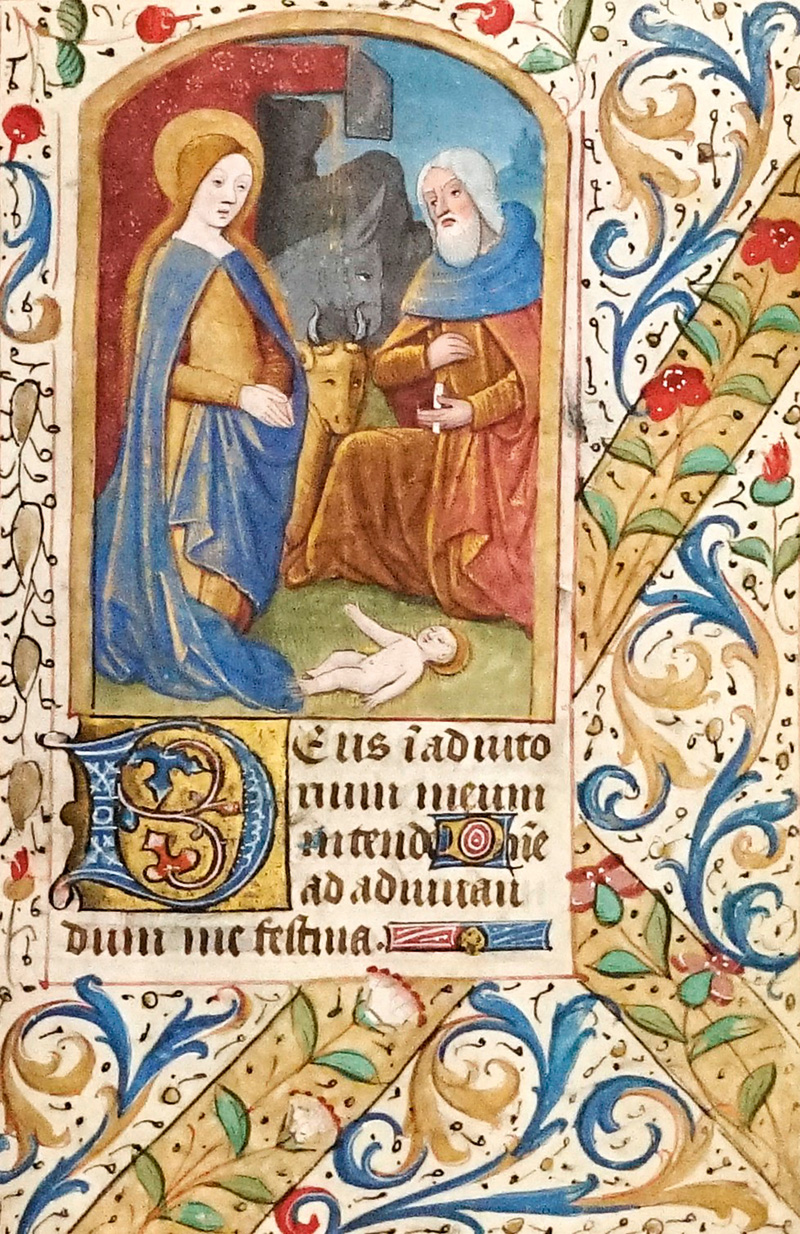 Deus ī adiuto
rium meum
intende One
ad adiuuan
dum me festina.